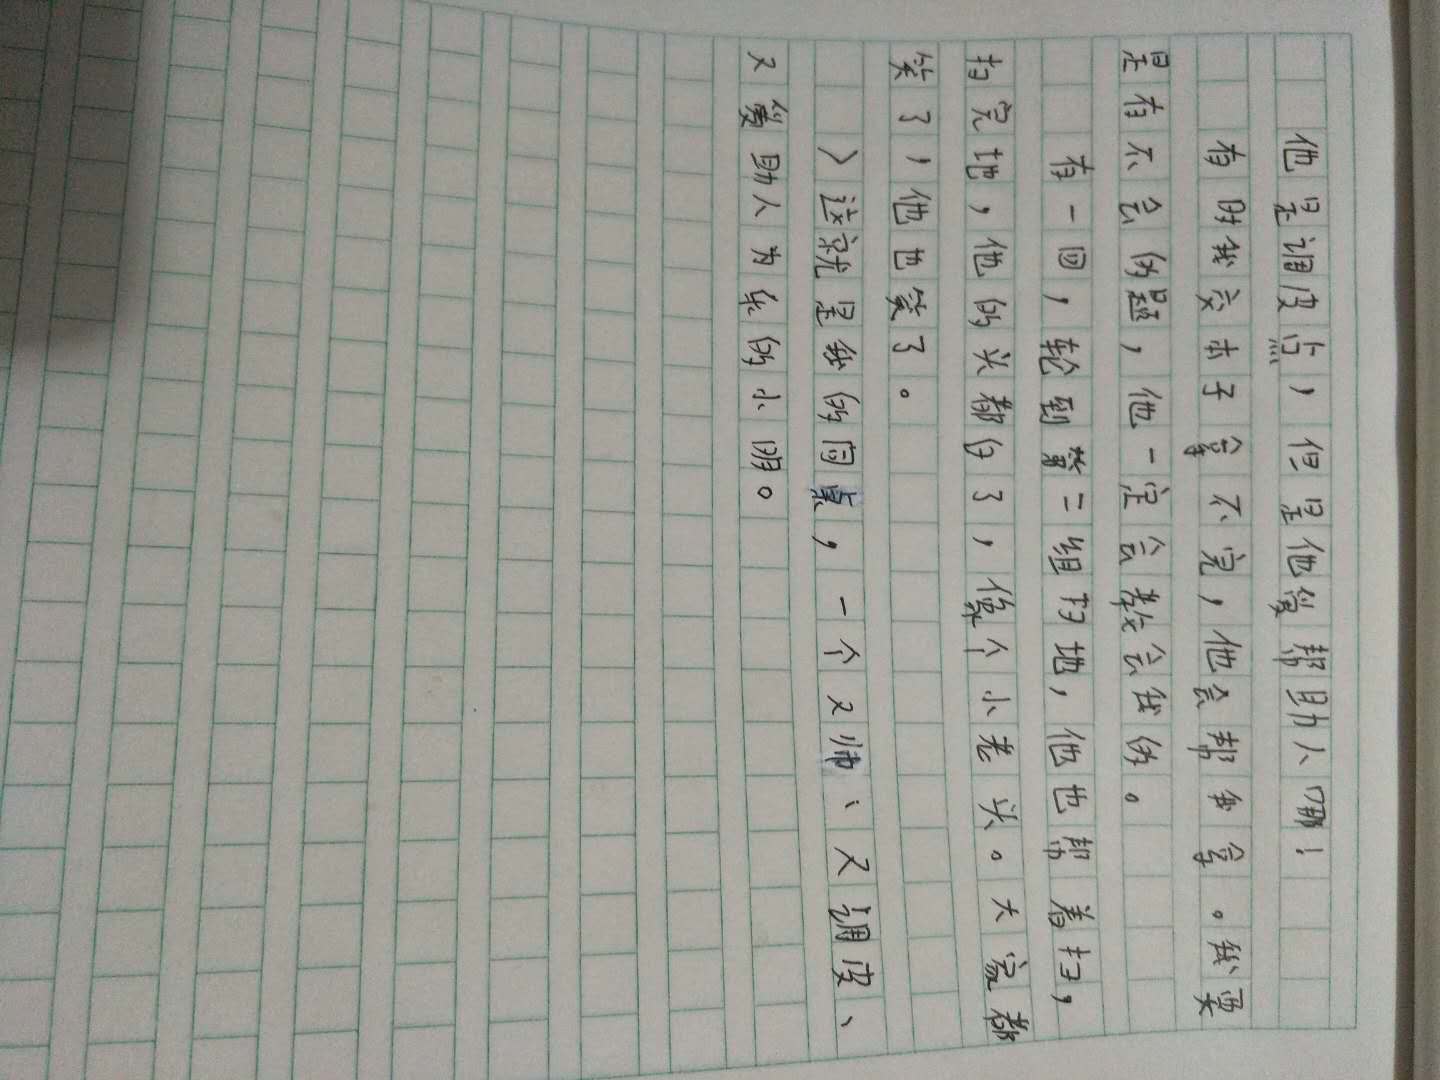 他是调皮点，但是他爱帮助人哪！
有时我交本子拿不完，他会帮我拿。我要
是有不会的题，他一定会教会我的。
有一回，轮到第二组扫地，他也帮着扫，
扫完地，他的头都白了，像个小老头。大家都
笑了，他也笑了。
这就是我的同桌，一个又帅、又调皮、
又爱助人为乐的小明。